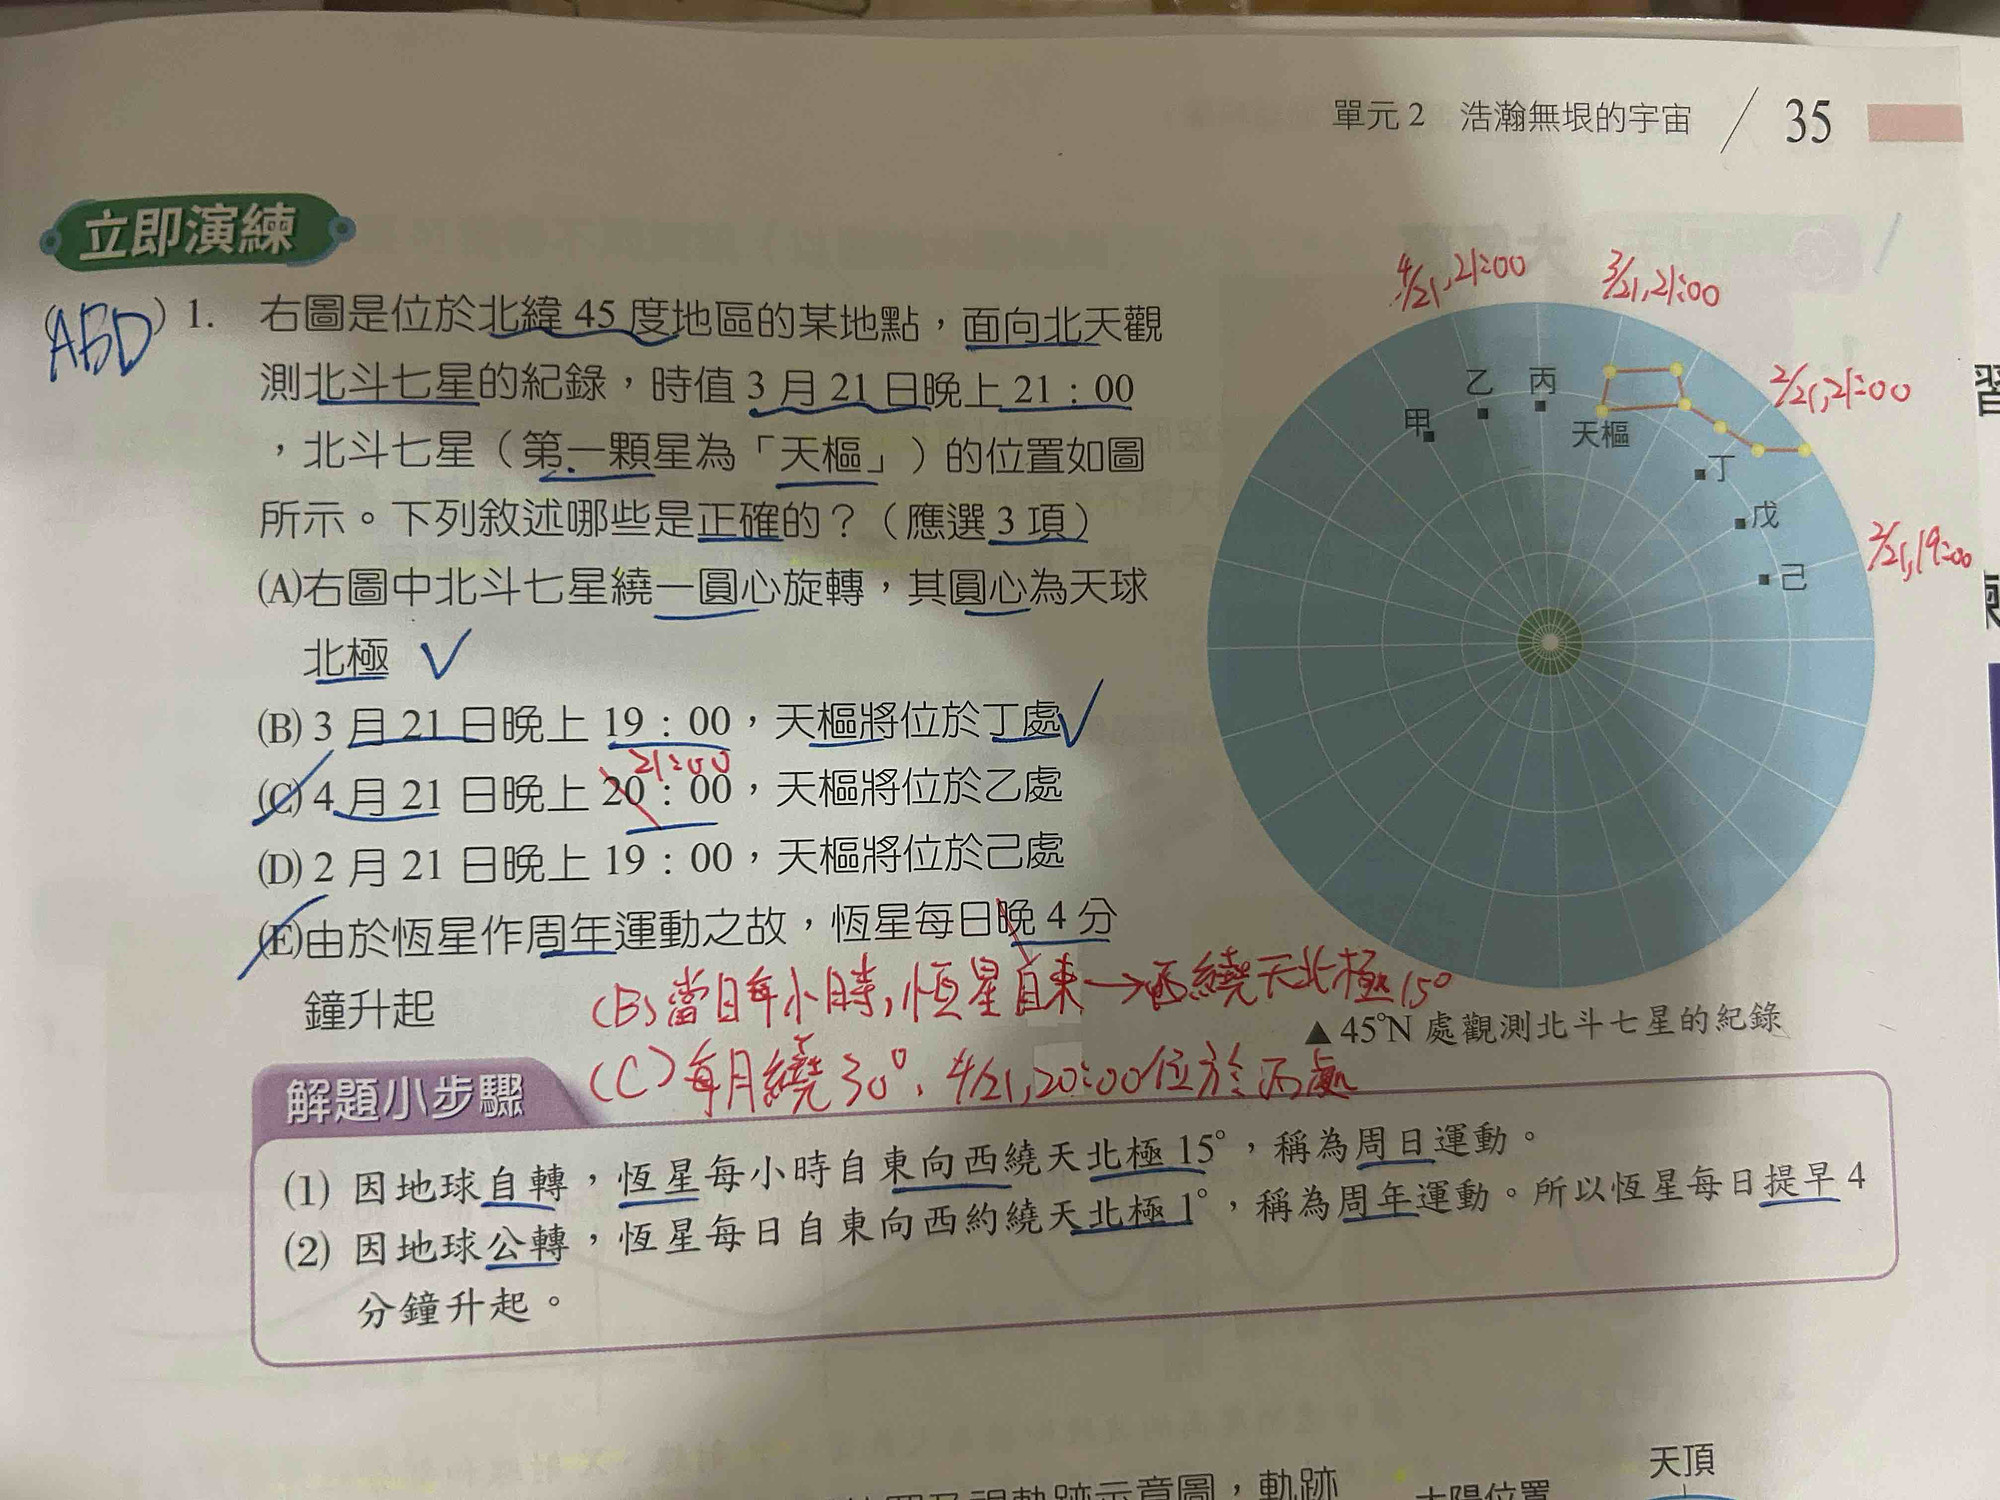 單元 2 浩瀚無垠的宇宙 / 35
立即演練
(ABD) 1. 右圖是位於北緯 45 度地區的某地點，面向北天觀
測北斗七星的紀錄，時值 3 月 21 日晚上 21：00
，北斗七星（第一顆星為「天樞」）的位置如圖
所示。下列敘述哪些是正確的？（應選 3 項）
(A)右圖中北斗七星繞一圓心旋轉，其圓心為天球
北極 ✓
(B) 3 月 21 日晚上 19：00，天樞將位於丁處✓
21:00
(C) 4 月 21 日晚上 20：00，天樞將位於乙處
(D) 2 月 21 日晚上 19：00，天樞將位於己處
(E)由於恆星作周年運動之故，恆星每日晚 4 分
鐘升起
4/21, 21:00
3/21, 21:00
2/21, 21:00
2/21, 19:00
甲
乙
丙
天樞
丁
戊
己
▲45°N 處觀測北斗七星的紀錄
(B) 當日每小時,恆星自東→西繞天北極15°
(C) 每月繞30°, 4/21,20:00位於丙處
解題小步驟
(1) 因地球自轉，恆星每小時自東向西繞天北極 15°，稱為周日運動。
(2) 因地球公轉，恆星每日自東向西約繞天北極 1°，稱為周年運動。所以恆星每日提早 4
分鐘升起。
習
天頂
太陽位置
軌跡示意圖，軌跡